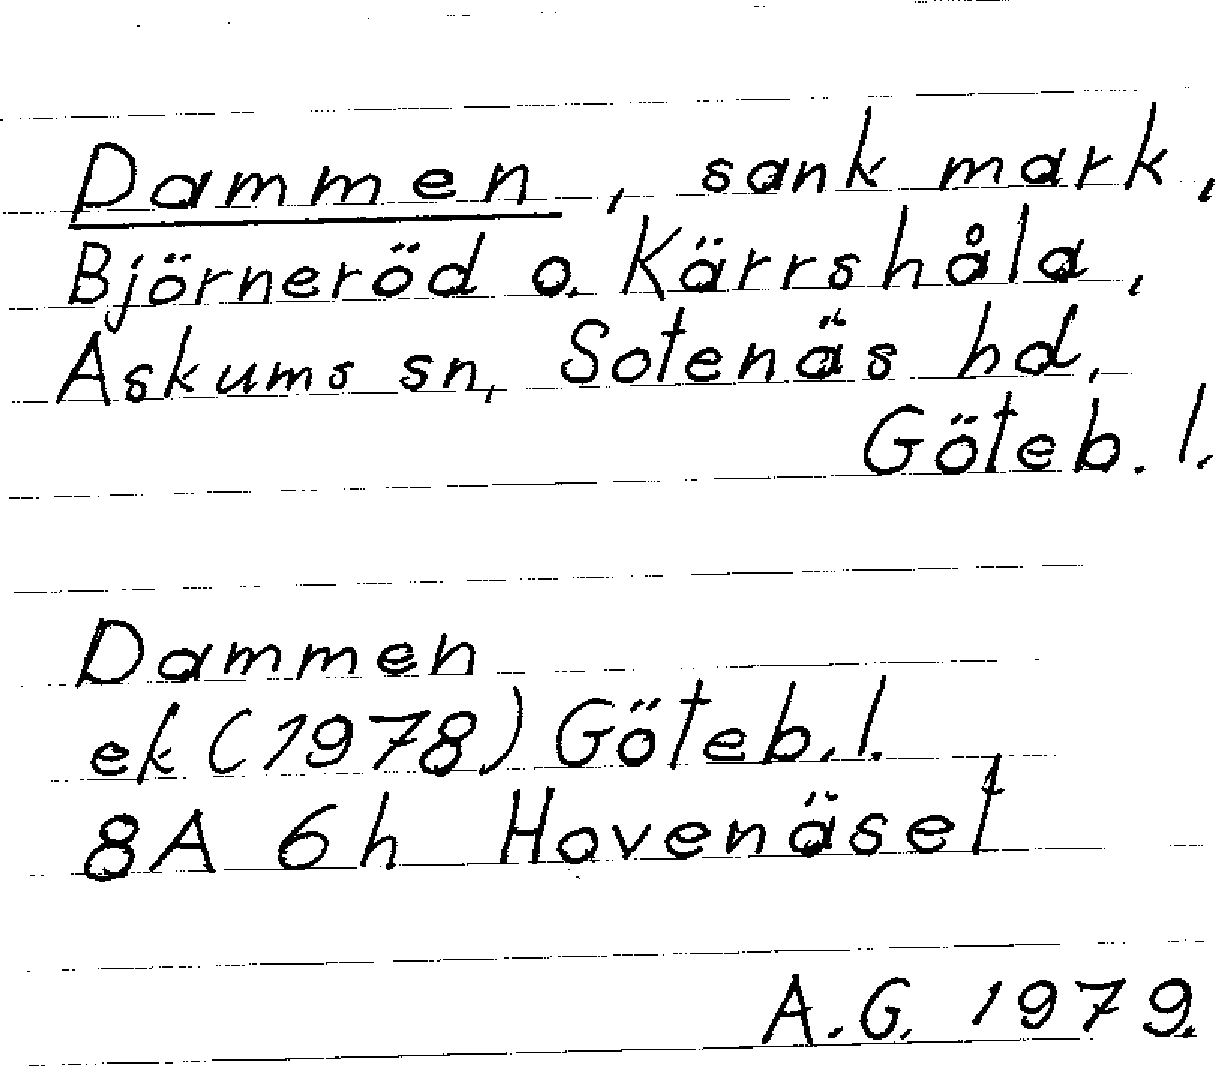 Dammen, sank mark,
Björneröd o. Kärrshåla,
Askums sn, Sotenäs hd,
Göteb. l.
Dammen
ek (1978) Göteb. l.
8A 6h Hovenäset
A.G. 1979.